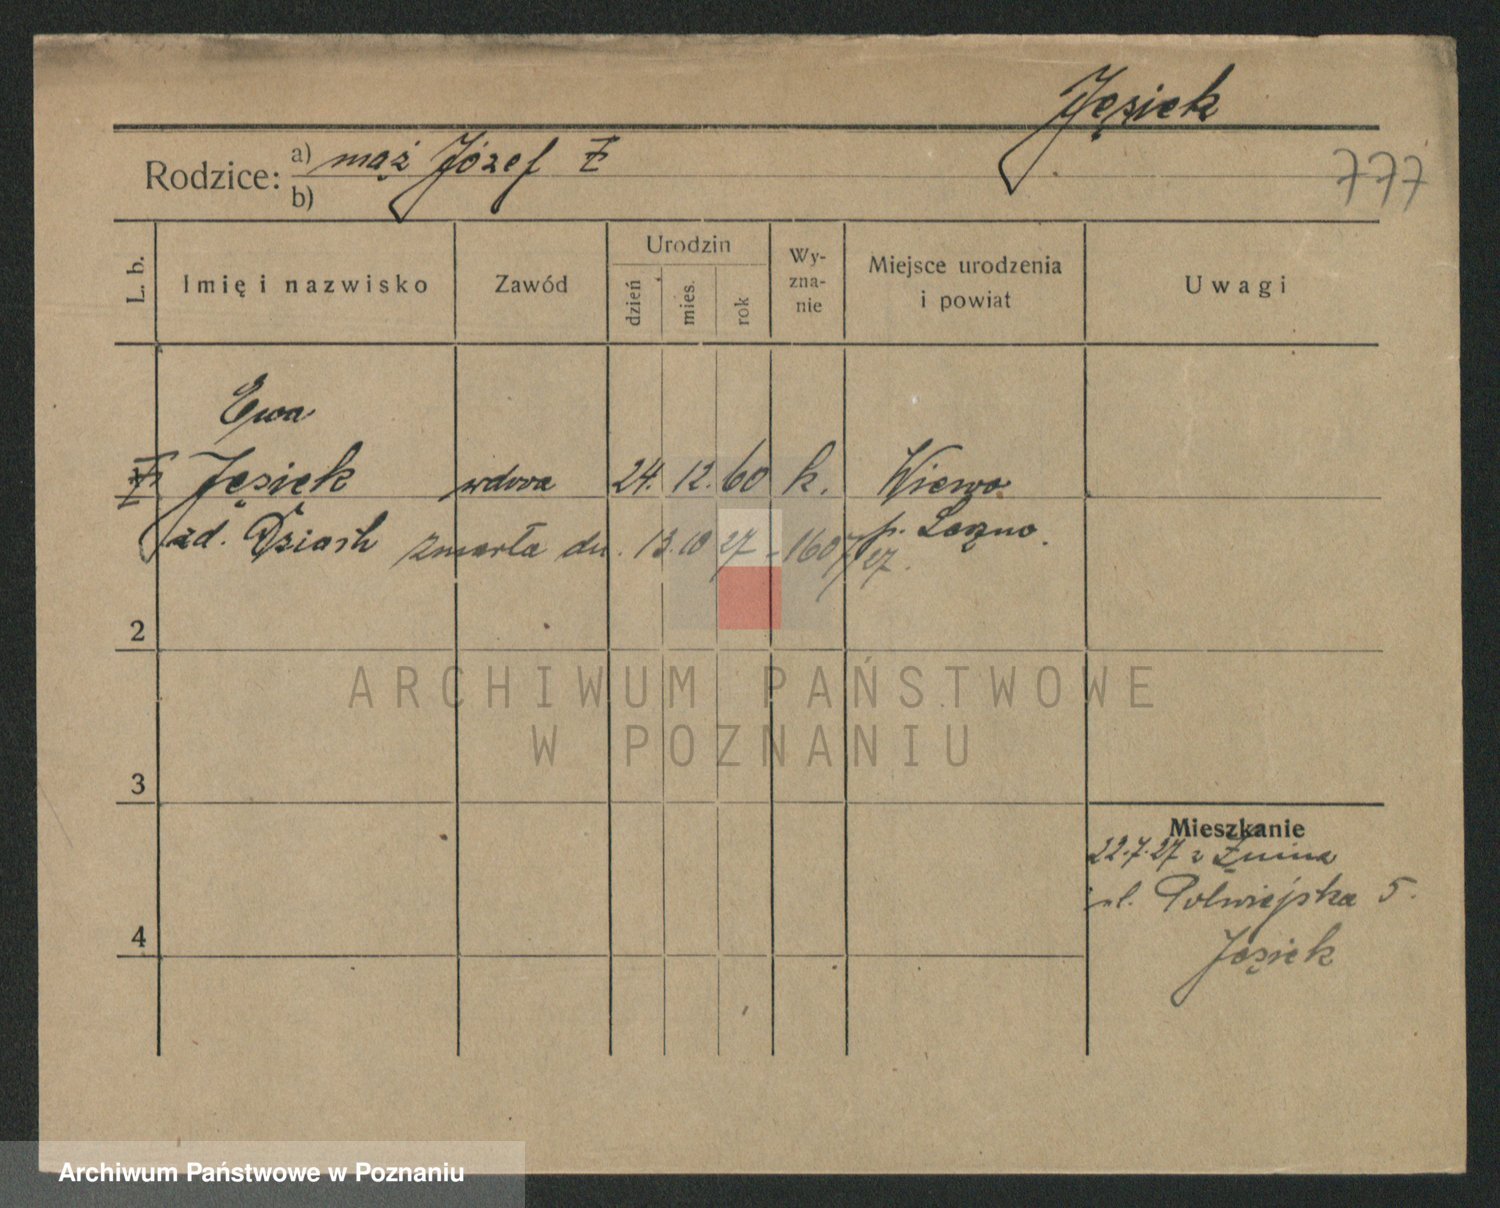 Jęsiek
Rodzice: a) mąż Józef
b)
777
L. b.
Imię i nazwisko
Zawód
Urodzin
dzień
mies.
rok
Wy-
zna-
nie
Miejsce urodzenia
i powiat
Uwagi
Ewa
Jęsiek wdowa 24. 12. 60 k. Wiewo
zmarła dn. 13.10 27 - 1607/27.
2
3
4
Mieszkanie
22.7.27 z Żnina
ul. Półwiejska 5.
Jęsiek
ARCHIWUM PAŃSTWOWE
W POZNANIU
Archiwum Państwowe w Poznaniu